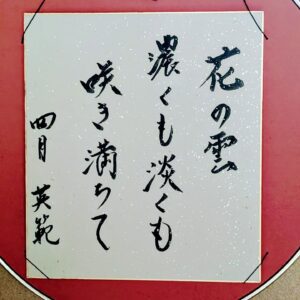 花の雲
濃くも淡くも
咲き満ちて
四月 英範